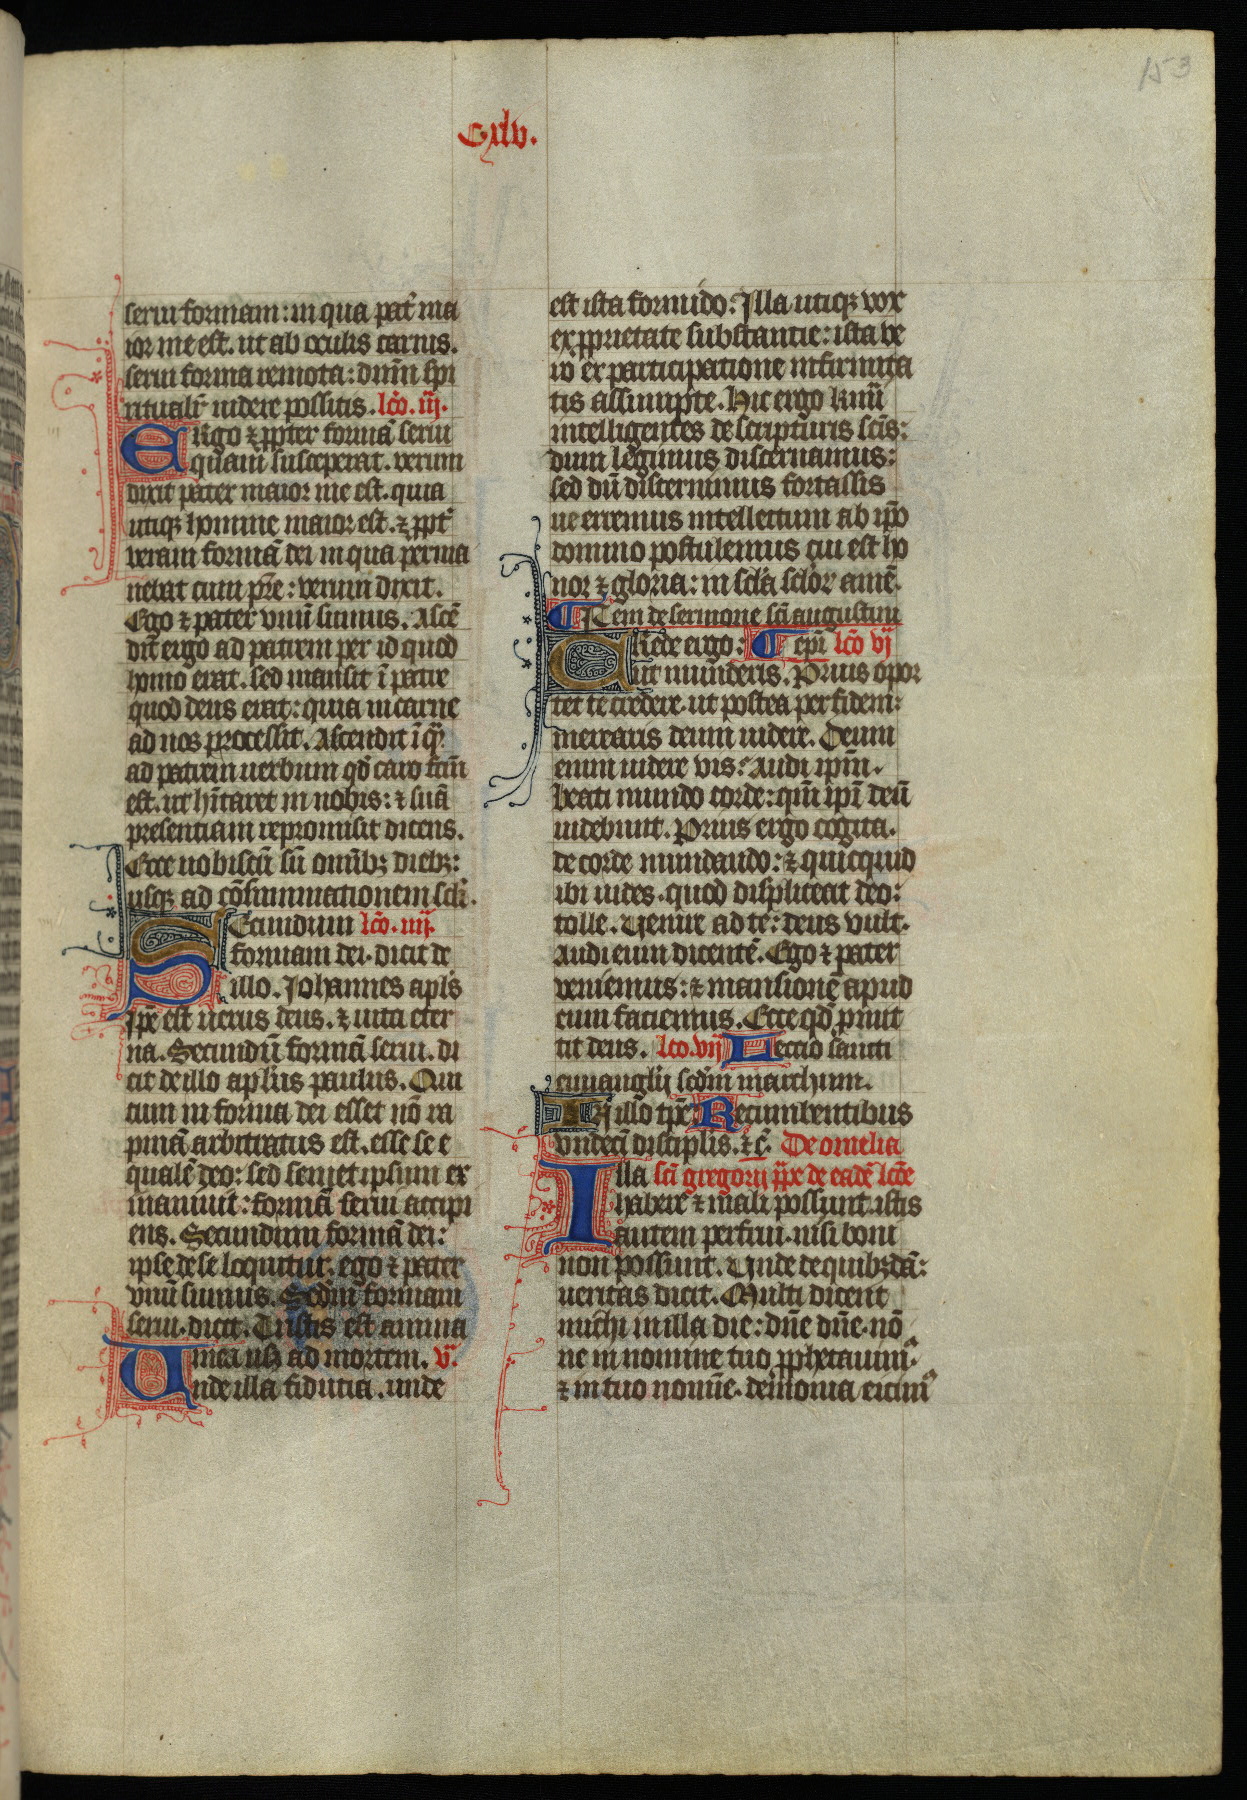 153
Cxlv.
serui formam: in qua pat̛ ma
ior me est. ut ab oculis carnis.
serui forma remota: dn̄m spi
ritualr̛ uidere possitis. lc̄o. iij.
ERgo ⁊ ꝓpter formā serui
quam susceperat. verum
dixit pater maior me est. quia
utiqꝫ homine maior est. ⁊ ꝓpt̛
veram formā dei in qua perma
nebat cum pr̄e: verum dixit.
Ego ⁊ pater vnū sumus. Ascē
dit ergo ad patrem per id quod
homo erat. sed mansit ī patre
quod deus erat: quia in carne
ad nos processit. Ascendit
ad patrem uerbum qd̄ caro fcm̄
est. ut hītaret in nobis: ⁊ suā
presentiam repromisit dicens.
Ecce uobiscū sū omībꝫ diebꝫ:
usqꝫ ad cōsummationem scli̛.
SEcundum lc̄o. iiij.
formam dei. dicit de
illo. Johannes apl̄s
Ip̄e est uerus deus. ⁊ uita eter
na. Secundū formā serui. di
cit de illo apl̄us paulus. Qui
cum in forma dei esset nō ra
pinā arbitratus est. esse se e
qualē deo: sed semet ipsum ex
inaniuit: formā serui accipi
ens. Secundum formā dei:
ipse de se loquitur. ego ⁊ pater
vnū sumus. Scdm̄ formam
serui. dicit. Tristis est anima
mea usqꝫ ad mortem. v̄.
Unde illa fiducia. unde
est ista formido: Illa utiqꝫ vox
ex ꝓprietate substantie: ista ve
ro ex participatione infirmita
tis assumpte. Hic ergo
intelligentes de scripturis scīs:
dum legimus discernamus:
sed dū discernimus fortassis
ne erremus intellectum ab ip̄o
domino postulemus cui est ho
nor ⁊ gloria: in scl̄a sclor̄ amē.
Item de sermone scī augustini
CRede ergo: epī lc̄o vj
ut munderis. Prius opor
tet te credere. ut postea per fidem:
merearis deum uidere. Deum
enim uidere vis: Audi ipm̄.
beati mundo corde: qm̄ ipī deū
uidebunt. Prius ergo cogita.
de corde mundando: ⁊ quicquid
ibi uides. quod displiceat deo:
tolle. Uenire ad te: deus vult.
Audi eum dicentē. Ego ⁊ pater
veniemus: ⁊ mansionē apud
eum faciemus. Ecce qd̄ ꝓmit
tit deus. lc̄o. vij Lectio sancti
euuanglij scdm̄ marchum.
IN illo tp̄e Recumbentibus
vndecī discip̄lis. ⁊c̄. De omelia
Illa scī gregorij pp̄e de eadē lc̄oe
habere ⁊ mali possunt. istis
autem perfrui. nisi boni
non possunt. Unde de quibꝫdā:
ueritas dicit. Multi dicent
michi in illa die: dn̄e dn̄e. nō
ne in nomine tuo ꝓphetauim̛.
⁊ in tuo noīne. demonia eicim̛